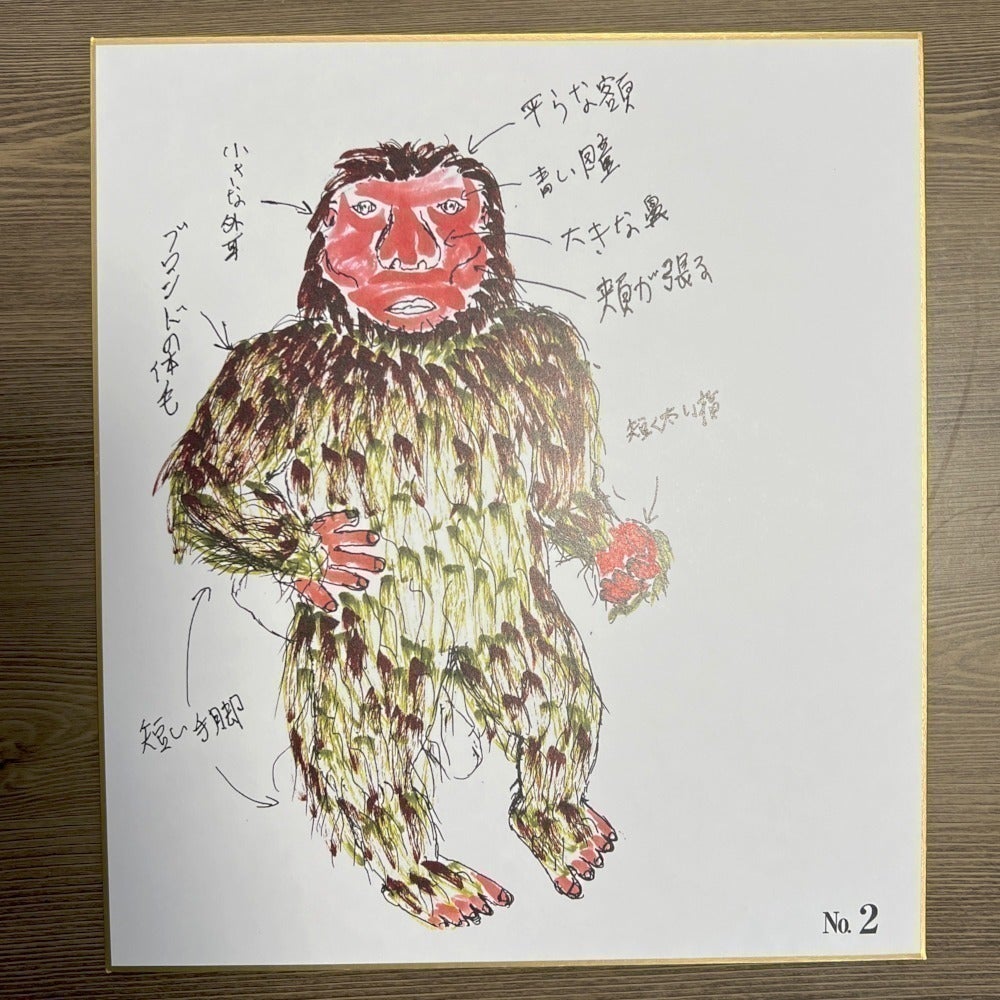 平らな額
青い瞳
大きな鼻
頬が張る
小さな外耳
ブロンドの体毛
短く太い指
短い手脚
No. 2